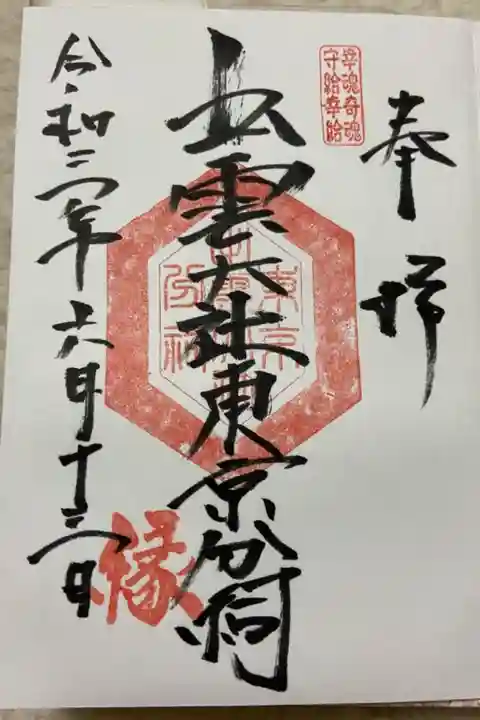 奉拝
幸魂奇魂
守給幸給
出雲大社東京分祠
東京
出雲大社
分祠
縁
令和二年六月十三日